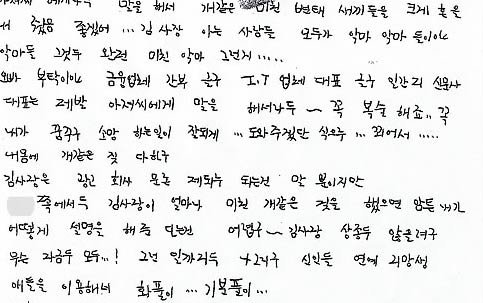 말을 해서 개같은 미친 변태 새끼들을 크게 혼을
줬음 좋겠어 ... 김사장 아는 사람들 모두가 악마 악마 들이야
악마들 그것두 완전 미친 악마 그런거 .....
오빠 부탁이야 금융업체 간부 하구 I.T 업체 대표 하구 일간지 신문사
대표는 제발 아저씨에게 말을 해서라두 ~ 꼭 복수 해죠.. 꼭
내가 꿈꾸구 소망 하는일이 잘되게 ... 도와주겠단 식으루 ... 꾀어서 .....
내몸에 개같은 짓 다하구
김사장은 광고 회사 모든 제의두 되는건 말 뿐이지만
쪽에서두 김사장이 얼마나 미친 개같은 것을 했으면 암튼 내가
어떻게 설명을 해 주 여럽구 ~ 김사장 상종두 않을려구
무든 지금두 모두...! 그런 일까지두 신인들 연예 지망생
애들을 이용해서 화풀이 ... 기분풀이 ...